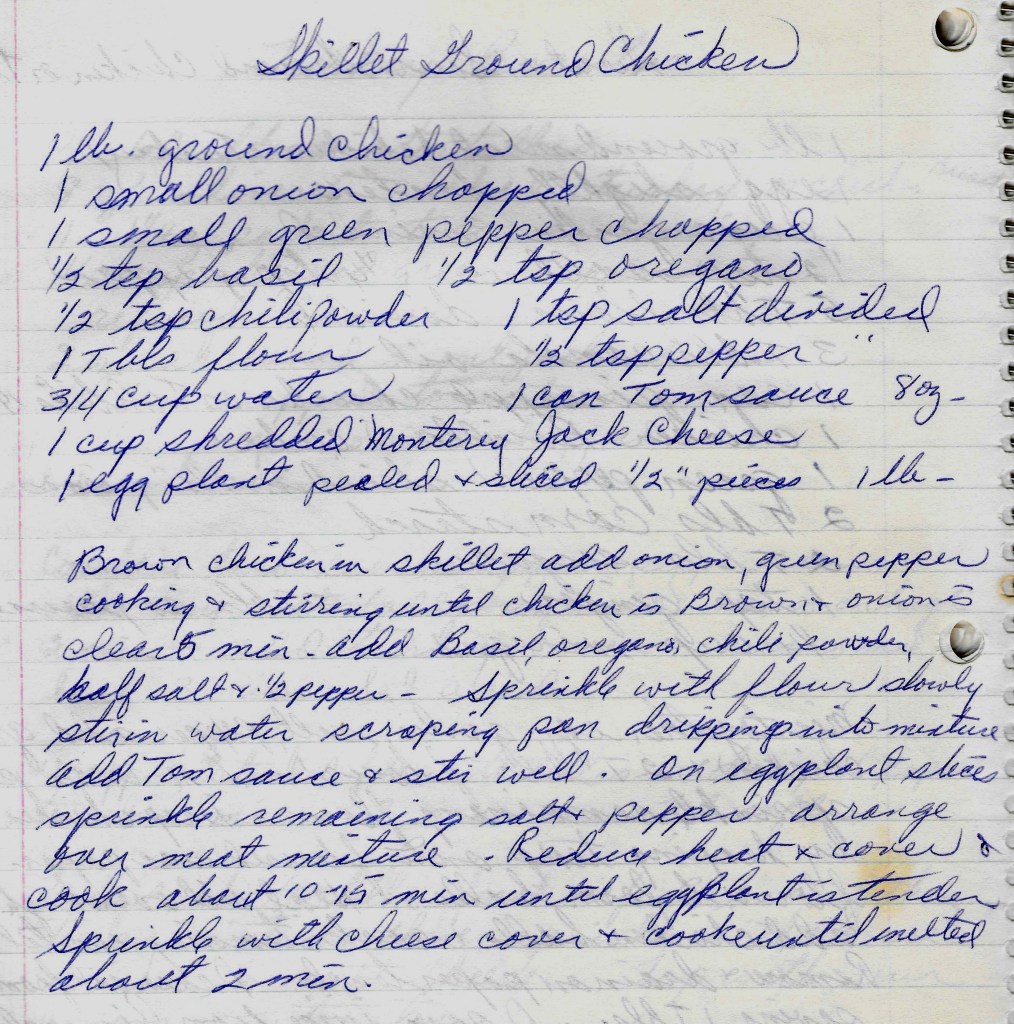 Skillet Ground Chicken
1 lb. ground chicken
1 small onion chopped
1 small green pepper chopped
1/2 tsp basil 1/2 tsp oregano
1/2 tsp chili powder 1 tsp salt divided
1 Tbls flour 1/2 tsp pepper "
3/4 cup water 1 can Tom sauce 8oz-
1 cup shredded Monterey Jack Cheese
1 egg plant pealed & sliced 1/2" pieces 1 lb-
Brown chicken in skillet add onion, green pepper
cooking & stirring until chicken is Brown & onion is
clear 5 min - add Basil, oregano, chili powder,
half salt & 1/2 pepper - Sprinkle with flour slowly
stir in water scraping pan dripping into mixture
add Tom sauce & stir well. On eggplant slices
sprinkle remaining salt & pepper arrange
over meat mixture. Reduce heat & cover &
cook about 10-15 min until eggplant is tender
Sprinkle with cheese cover & cook until melted
about 2 min.